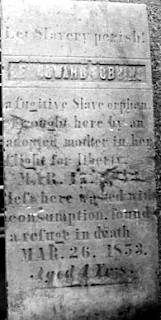 Let Slavery perish!
LEE HOWARD DOBBINS
a fugitive Slave orphan
brought here by an
adopted mother in her
flight for liberty.
MAR.
left here wasted with
consumption, found
a refuge in death
MAR. 26, 1853.
Aged 4 Yrs.